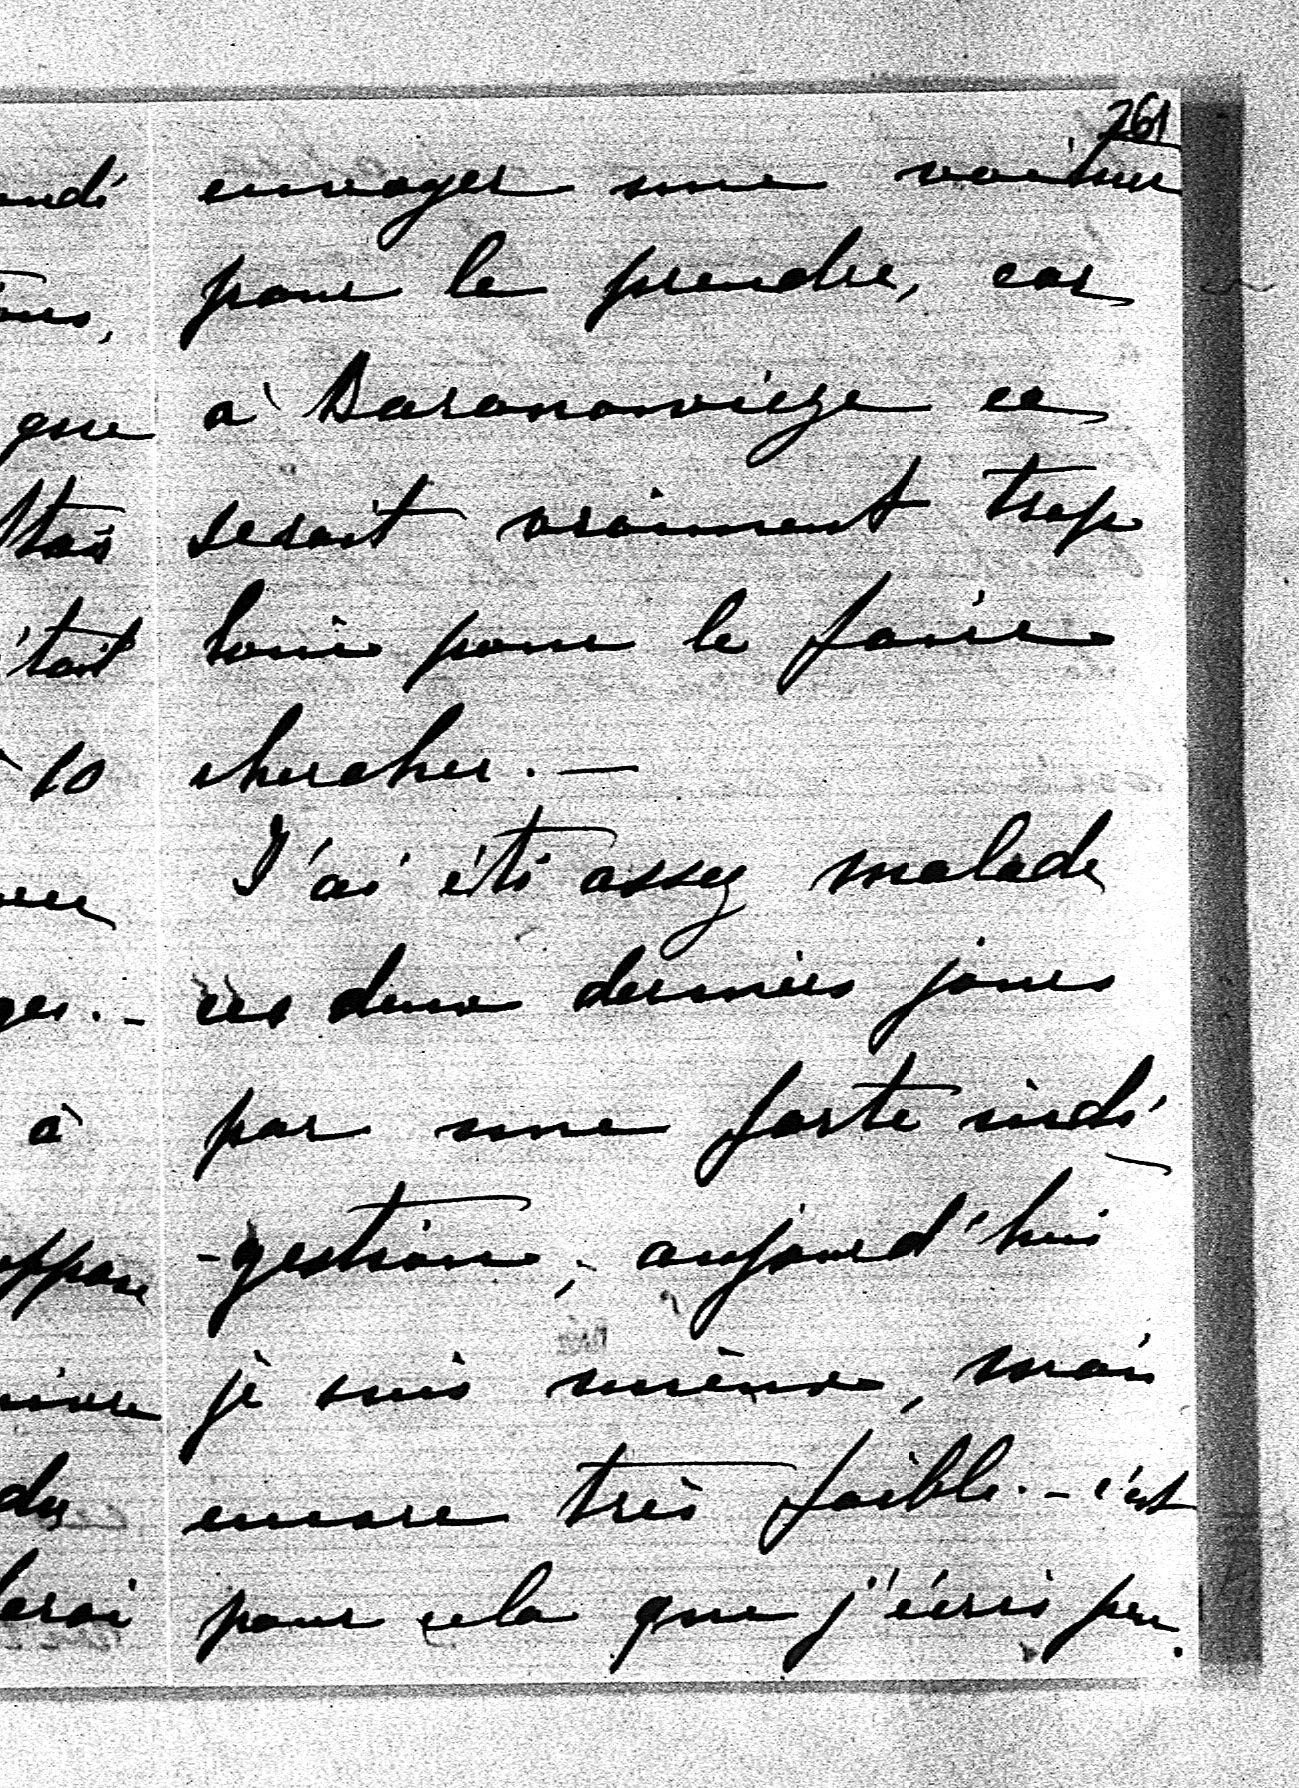 261
envoyer une voiture
pour le prendre, car
à Baranowicze ce
serait vraiment trop
loin pour le faire
chercher. —
J'ai été assez malade
ces deux derniers jours
par une forte indi-
-gestion, aujourd'hui
je suis mieux, mais
encore très faible. – c'est
pour cela que j'écris peu.
que
à 10
à